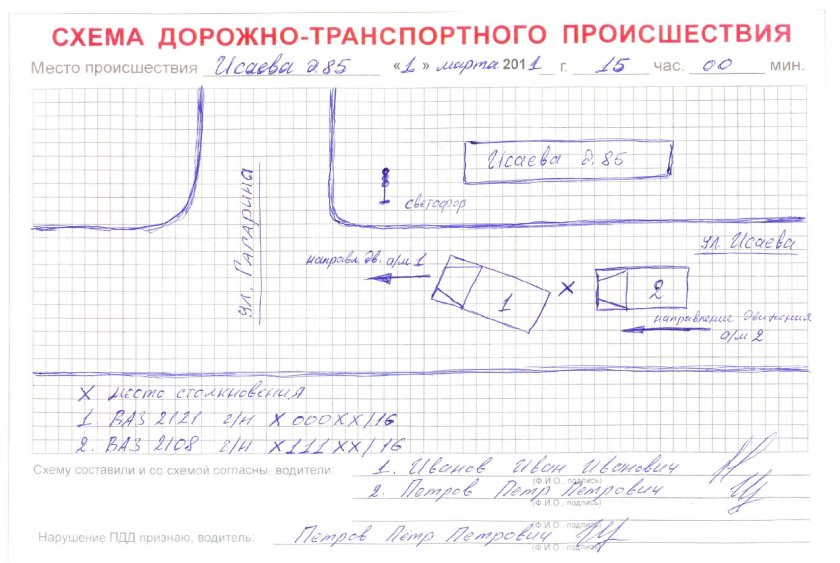 СХЕМА ДОРОЖНО-ТРАНСПОРТНОГО ПРОИСШЕСТВИЯ
Место происшествия Исаева д.85 «1» марта 2011 г. 15 час. 00 мин.
Исаева д.85
светофор
ул. Гагарина
ул. Исаева
направл. дв. а/м 1
1
X
2
направление движения
а/м 2
X место столкновения
1. ВАЗ 2121 г/н X 000 XX/16
2. ВАЗ 2108 г/н X 111 XX/16
Схему составили и со схемой согласны, водители: 1. Иванов Иван Иванович
(Ф.И.О., подпись)
2. Петров Петр Петрович
(Ф.И.О., подпись)
(Ф.И.О., подпись)
Нарушение ПДД признаю, водитель: Петров Петр Петрович
(Ф.И.О., подпись)